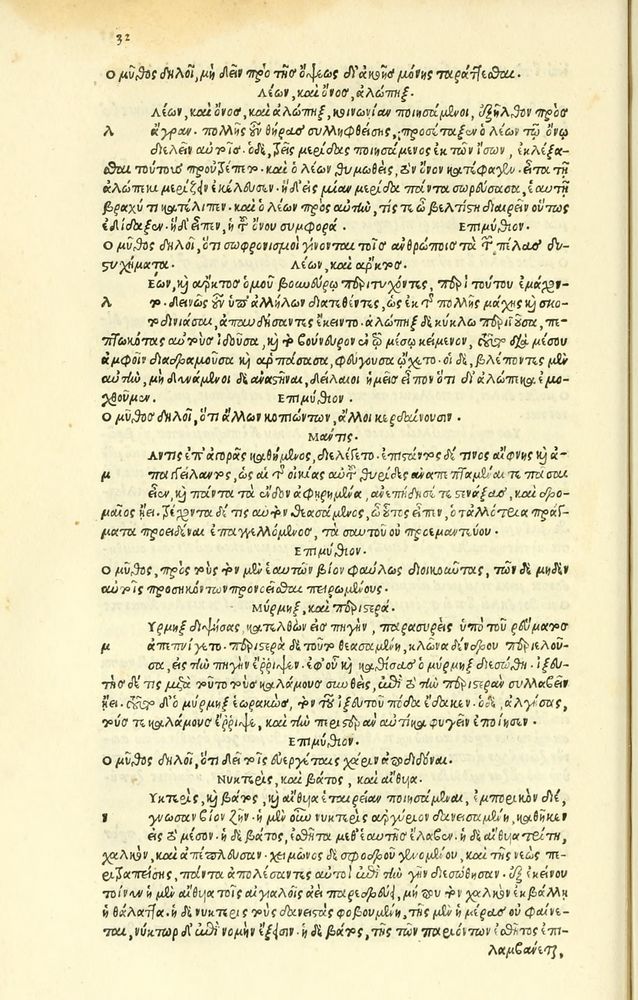 32
Ο μῦθος δηλοῖ, μὴ δεῖν πρὸ τῆς ὄψεως δι' ἀκοῆς μόνης ταράττεσθαι.
Λέων, καὶ ὄνος, ἀλώπηξ.
Λέων, καὶ ὄνος, καὶ ἀλώπηξ, κοινωνίαν ποιησάμενοι, ἐξῆλθον πρὸς
λ ἄγραν. πολλῆς οὖν θήρας συλληφθείσης, προσέταξεν ὁ λέων τῷ ὄνῳ
διελεῖν αὐτοῖς. ὁ δὲ, τρεῖς μερίδας ποιησάμενος ἐκ τῶν ἴσων, ἐκλέξα-
σθαι τούτους προὔτρεπεν. καὶ ὁ λέων θυμωθεὶς, τὸν ὄνον κατέφαγεν. εἶτα τῇ
ἀλώπεκι μερίζειν ἐκέλευσεν. ἡ δ' εἰς μίαν μερίδα πάντα σωρεύσασα, ἑαυτῇ
βραχύ τι κατέλιπεν. καὶ ὁ λέων πρὸς αὐτὴν, τίς σε ὦ βελτίστη διαιρεῖν οὕτως
ἐδίδαξεν. ἡ δ' εἶπεν, ἡ τοῦ ὄνου συμφορά. Επιμύθιον.
Ο μῦθος δηλοῖ, ὅτι σωφρονισμοὶ γίνονται τοῖς ἀνθρώποις τὰ τοῦ πέλας δυ-
στυχήματα. Λέων, καὶ ἄρκτος.
Εων, καὶ ἄρκτος ὁμοῦ νεβρῷ περιτυχόντες, περὶ τούτου ἐμάχον-
λ το. δεινῶς οὖν ὑπ' ἀλλήλων διατεθέντες, ὡς ἐκ τῆς πολλῆς μάχης καὶ σκο-
τοδινιάσαι, ἀπαυδήσαντες ἔκειντο. ἀλώπηξ δὲ κύκλῳ περιϊοῦσα, πε-
πτωκότας αὐτοὺς ἰδοῦσα, καὶ τὸν νεβρὸν ἐν τῷ μέσῳ κείμενον, τοῦτον διὰ μέσου
ἀμφοῖν διαδραμοῦσα καὶ ἁρπάσασα, φεύγουσα ᾤχετο. οἱ δὲ, βλέποντες μὲν
αὐτὴν, μὴ δυνάμενοι δὲ ἀναστῆναι, δείλαιοι ἡμεῖς εἶπον ὅτι δι' ἀλώπεκα ἐμο-
χθοῦμεν. Επιμύθιον.
Ο μῦθος δηλοῖ, ὅτι ἄλλων κοπιώντων, ἄλλοι κερδαίνουσιν.
Μάντις.
Αντις ἐπ' ἀγορᾶς καθήμενος, διελέγετο. ἐπιστάντος δέ τινος αἴφνης καὶ ἀ-
μ παγγείλαντος, ὡς αἱ τῆς οἰκίας αὐτοῦ θυρίδες ἀναπεπταμέναι τε πᾶσαί
εἰσιν, καὶ πάντα τὰ ἔνδον ἀφῃρημένα, ἀνεπήδησέ τε στενάξας, καὶ δρο-
μαῖος ᾔει. τρέχοντα δέ τις αὐτὸν θεασάμενος, ὦ οὗτος εἶπεν, ὁ τἀλλότρια πράγ-
ματα προειδέναι ἐπαγγελλόμενος, τὰ σαυτοῦ οὐ προεμαντεύου.
Επιμύθιον.
Ο μῦθος, πρὸς τοὺς τὸν μὲν ἑαυτῶν βίον φαύλως διοικοῦντας, τῶν δὲ μηδὲν
αὐτοῖς προσηκόντων προνοεῖσθαι πειρωμένους.
Μύρμηξ, καὶ περιστερά.
Υρμηξ διψήσας, κατελθὼν εἰς πηγὴν, παρασυρεὶς ὑπὸ τοῦ ῥεύματος
μ ἀπεπνίγετο. περιστερὰ δὲ τοῦτο θεασαμένη, κλῶνα δένδρου περιελοῦ-
σα, εἰς τὴν πηγὴν ἔρριψεν. ἐφ' οὗ καὶ καθίσας ὁ μύρμηξ διεσώθη. ἰξευ-
τὴς δέ τις μετὰ τοῦτο τοὺς καλάμους συνθεὶς, ἐπὶ τὸ τὴν περιστερὰν συλλαβεῖν
ᾔει. τοῦτο δ' ὁ μύρμηξ ἑωρακὼς, τὸν τοῦ ἰξευτοῦ πόδα ἔδακεν. ὁ δὲ, ἀλγήσας,
τούς τε καλάμους ἔρριψε, καὶ τὴν περιστερὰν αὐτίκα φυγεῖν ἐποίησεν.
Επιμύθιον.
Ο μῦθος δηλοῖ, ὅτι δεῖ τοῖς εὐεργέταις χάριν ἀποδιδόναι.
Νυκτερὶς, καὶ βάτος, καὶ αἴθυια.
Υκτερὶς, καὶ βάτος, καὶ αἴθυια ἑταιρείαν ποιησάμεναι, ἐμπορικὸν διέ-
ν γνωσαν βίον ζῆν. ἡ μὲν οὖν νυκτερὶς ἀργύριον δανεισαμένη, καθῆκεν
εἰς τὸ μέσον. ἡ δὲ βάτος, ἐσθῆτα μεθ' ἑαυτῆς ἔλαβεν. ἡ δὲ αἴθυια τρίτη,
χαλκὸν, καὶ ἀπέπλευσαν. χειμῶνος δὲ σφοδροῦ γενομένου, καὶ τῆς νεὼς πε-
ριτραπείσης, πάντα ἀπολέσαντες αὐτοὶ ἐπὶ τὴν γῆν διεσώθησαν. ἐξ ἐκείνου
τοίνυν ἡ μὲν αἴθυια τοῖς αἰγιαλοῖς ἀεὶ παρεδρεύει, μή που τὸν χαλκὸν ἐκβάλλῃ
ἡ θάλαττα. ἡ δὲ νυκτερὶς τοὺς δανειστὰς φοβουμένη, τῆς μὲν ἡμέρας οὐ φαίνε-
ται, νύκτωρ δ' ἐπὶ νομὴν ἔξεισιν. ἡ δὲ βάτος, τῆς τῶν παριόντων ἐσθῆτος ἐπι-
λαμβάνεται,